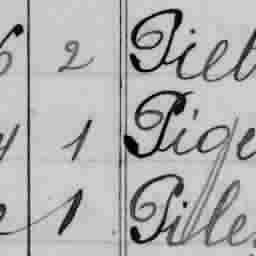 6 2 Pieb
4 1 Pige
1 Pille